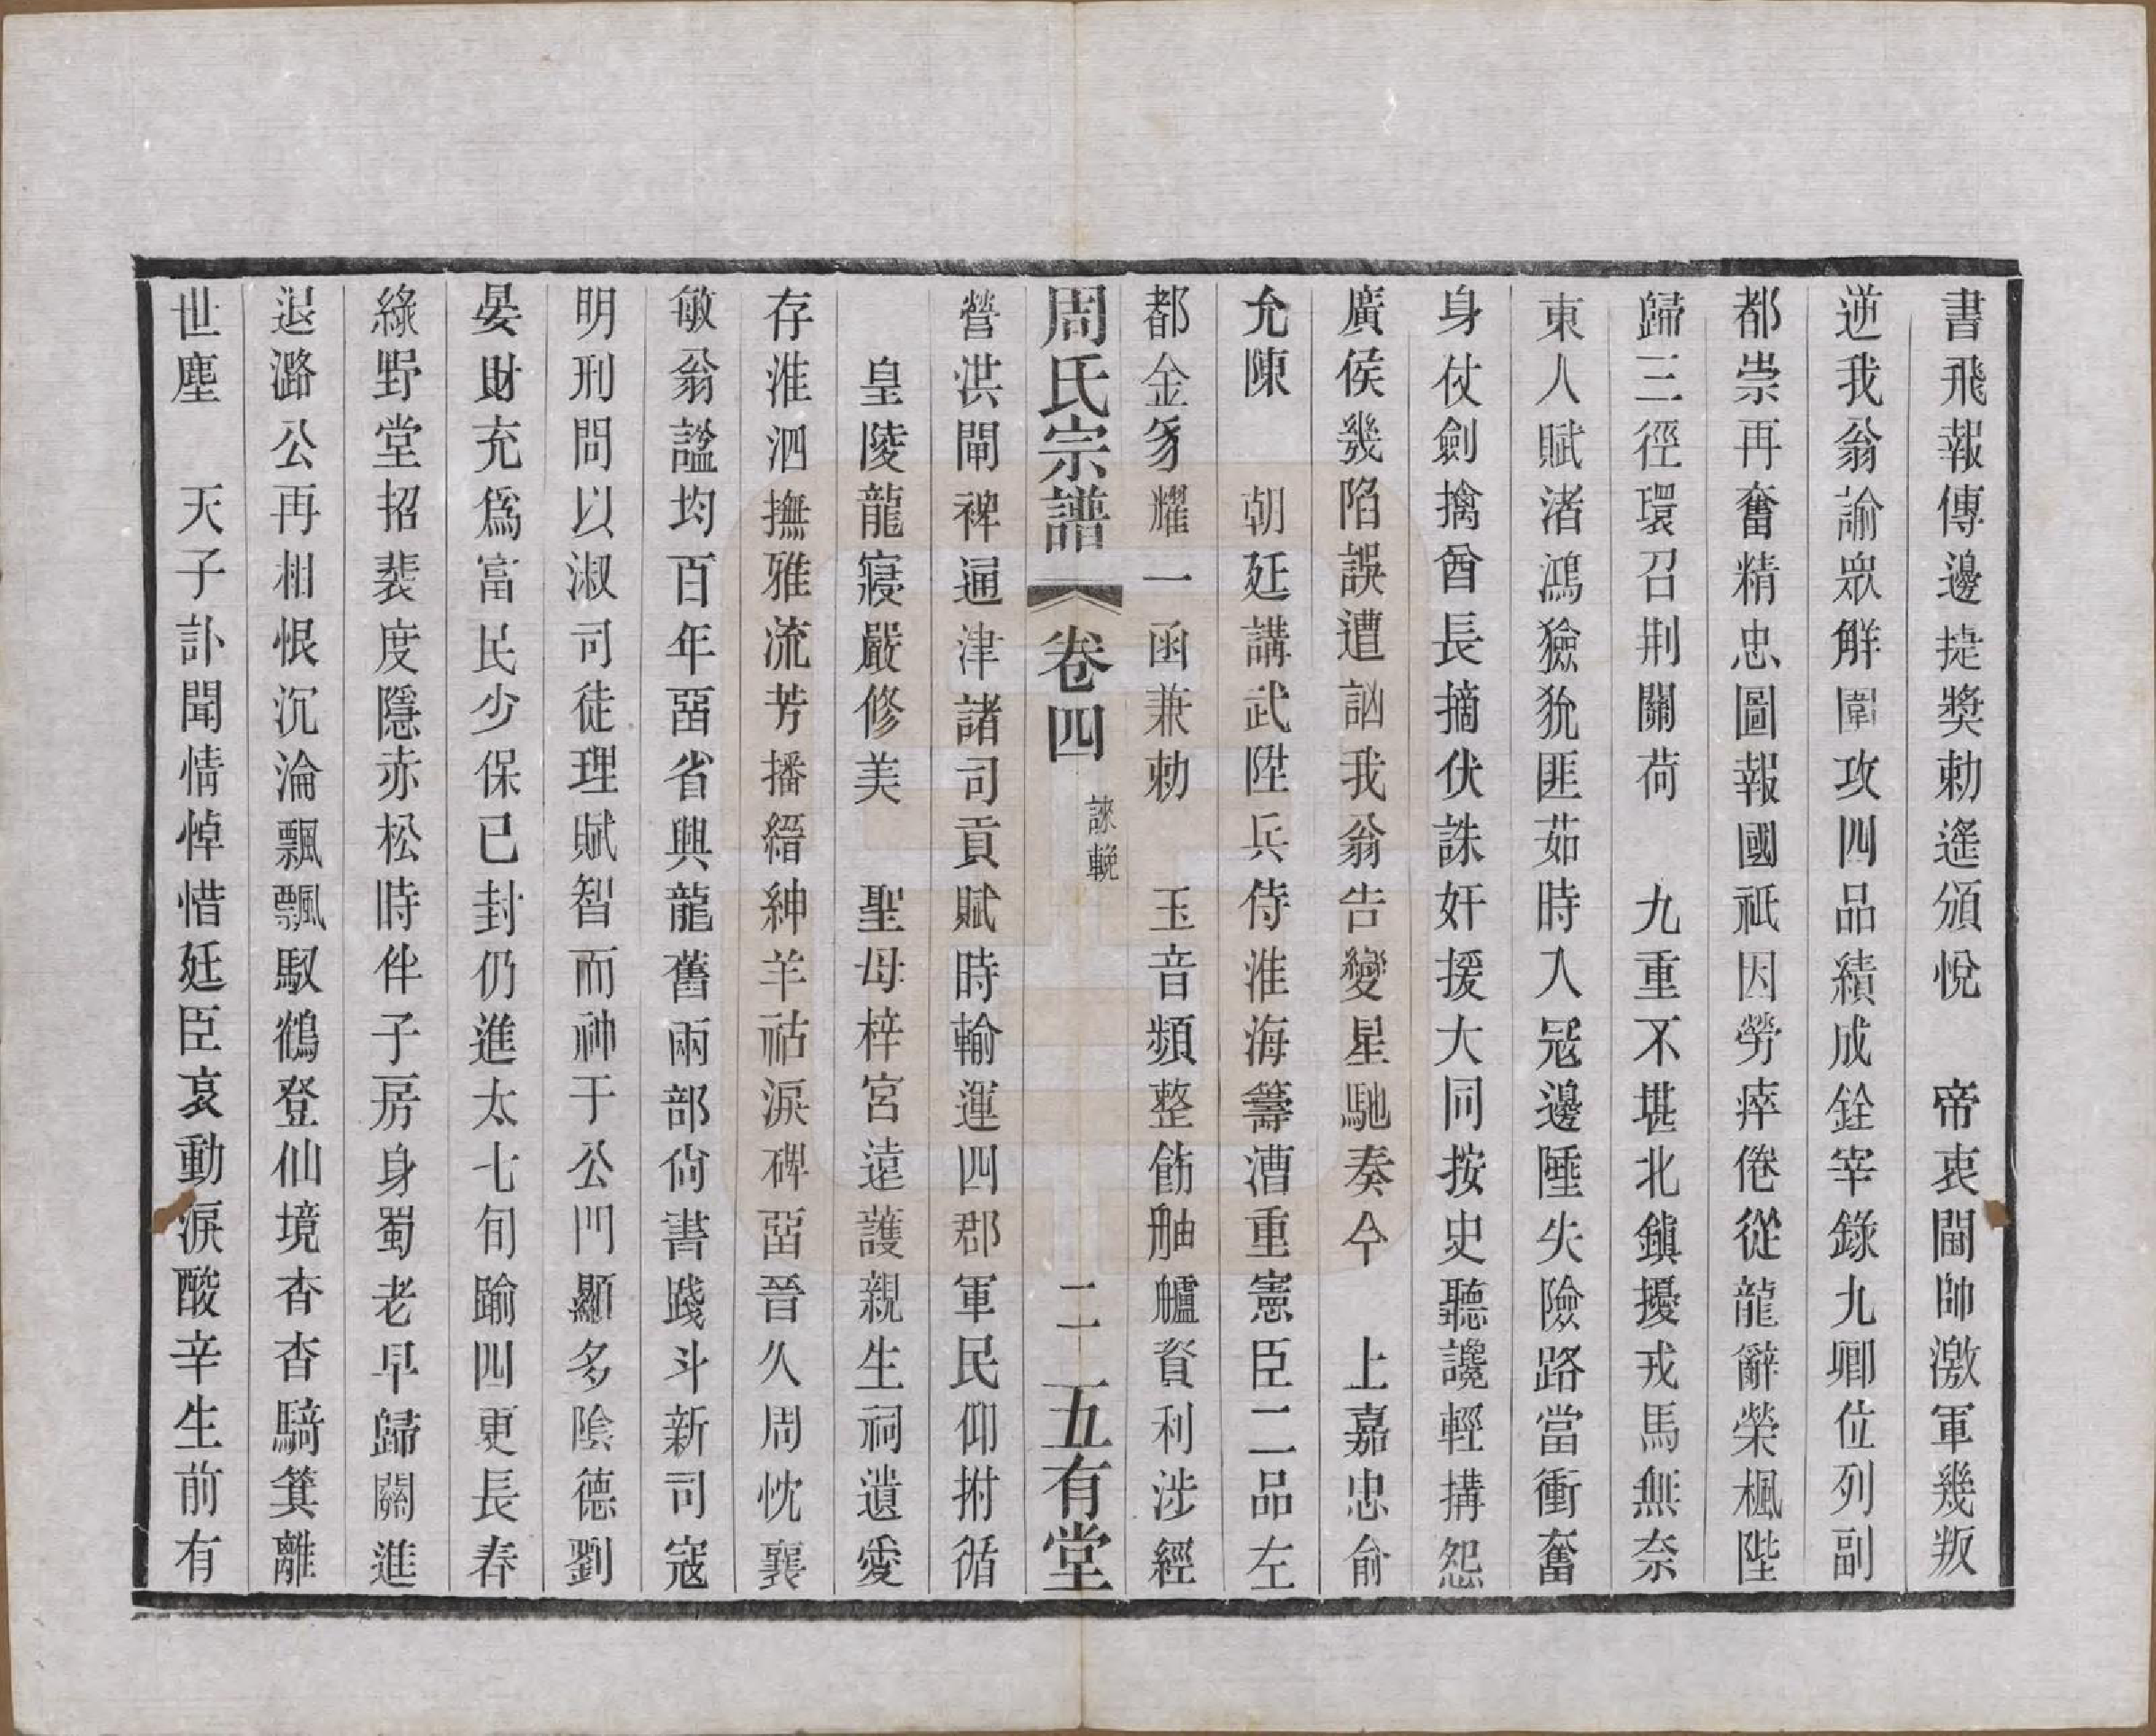 書飛報傳邊捷獎勅遙頒悅　帝衷閫帥激軍幾叛
逆我翁諭眾解圍攻四品績成銓宰錄九卿位列副
都崇再奮精忠圖報國祇因勞瘁倦從龍辭榮楓陛
歸三徑環召荆關荷　九重不堪北鎮擾戎馬無奈
東人賦渚鴻獫狁匪茹時入冦邊陲失險路當衝奮
身仗劍擒酋長摘伏誅奸援大同按史聽讒輕搆怨
廣侯幾陷誤遭訩我翁告變星馳奏今　上嘉忠俞
允陳　朝廷講武陞兵侍淮海籌漕重憲臣二品左
都金豸耀一函兼勅　玉音頻整飭舳艫資利涉經
周氏宗譜　卷四　誄輓　二　五有堂
營洪閘裨通津諸司貢賦時輸運四郡軍民仰拊循
皇陵龍寢嚴修美　聖母梓宮遠護親生祠遺愛
存淮泗撫雅流芳播縉紳羊祜淚碑畱晉久周忱襄
敏翁諡均百年畱省興龍舊兩部尙書踐斗新司寇
明刑問以淑司徒理賦智而神于公門顯多陰德劉
晏財充爲富民少保已封仍進太七旬踰四更長春
綠野堂招裴度隱赤松時伴子房身蜀老早歸關進
退潞公再相恨沉淪飄飄馭鶴登仙境杳杳騎箕離
世塵　天子訃聞情悼惜廷臣哀動淚酸辛生前有